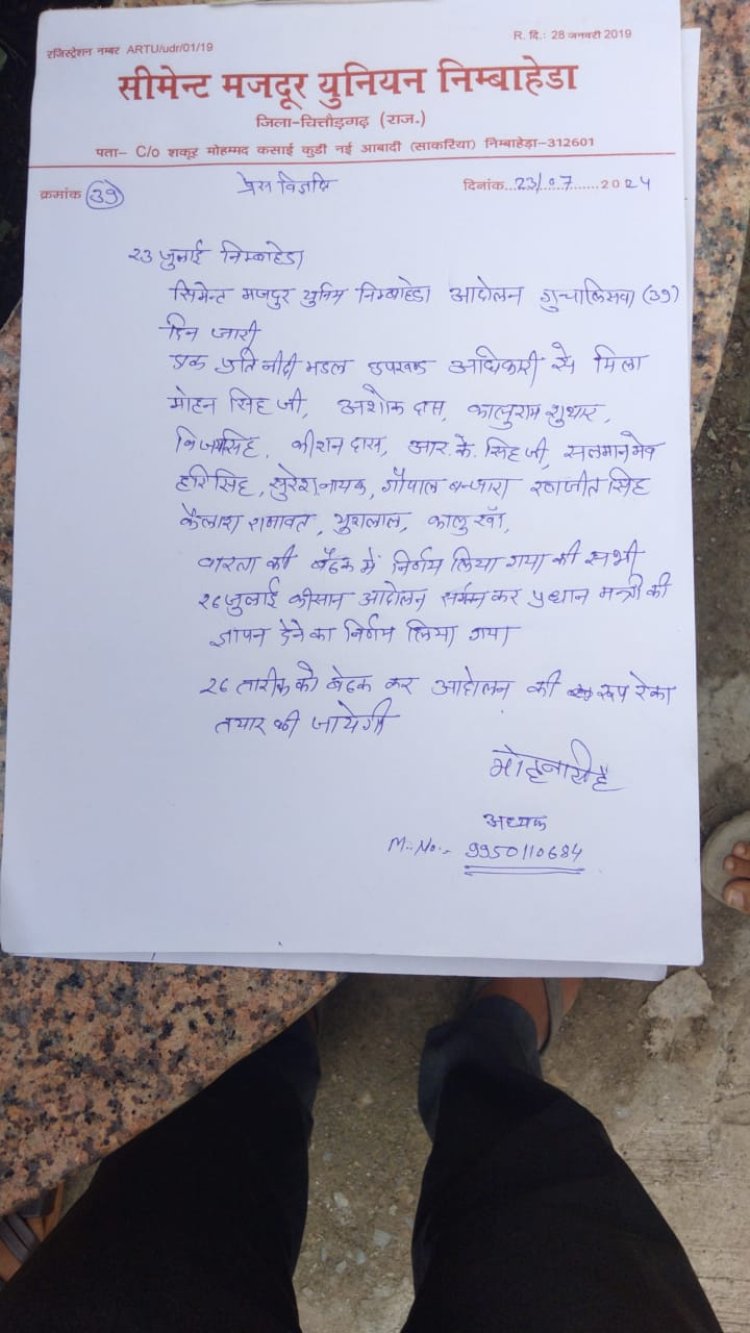 रजिस्ट्रेशन नम्बर ARTU/udr/01/19
R. दि.: 28 जनवरी 2019
सीमेन्ट मजदूर युनियन निम्बाहेडा
जिला-चित्तौड़गढ़ (राज.)
पता- C/o शकूर मोहम्मद कसाई कुडी नई आबादी (साकरिया) निम्बाहेड़ा-312601
क्रमांक 39 प्रेस विज्ञप्ति दिनांक..23/07......2024
23 जुलाई निम्बाहेडा
सिमेन्ट मजदुर युनिय निम्बाहेडा आदोलन गुचालिसवा (39)
दिन जारी
एक प्रति नीदी मडल उपखण्ड अधिकारी से मिला
मोहन सिंह जी, अशोक दास, कालुराम सुथार,
विजयसिंह, कीशन दास, आर. के. सिंह जी, सलमान मेव
हरि सिंह, सुरेश नायक, गौपाल बन्जारा रणजीत सिंह
कैलाश रामावत, भुरालाल, कालु खाँ,
वारता की बैठक में निर्णय लिया गया की सभी
26 जुलाई कीसान आदोलन कर प्रधान मन्त्री की
ज्ञापन देने का निर्णय लिया गया
26 तारीक को बेठक कर आदोलन की रूप रेका
तयार की जायेगी
मोहनसिंह
अध्यक्ष
M. No. - 9950110684